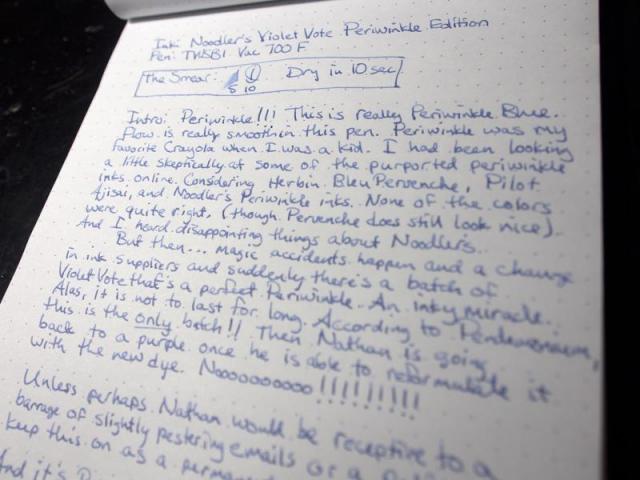 Ink: Noodler's Violet Vote Periwinkle Edition
Pen: TWSBI Vac 700 F
The Smear: 5 10 Dry in 10 sec
Intro: Periwinkle!!! This is really Periwinkle Blue.
Flow is really smooth in this pen. Periwinkle was my
favorite Crayola when I was a kid. I had been looking
a little skeptically at some of the purported periwinkle
inks online. Considering Herbin Bleu Pervenche, Pilot
Ajisai, and Noodler's Periwinkle inks. None of the colors
were quite right. (though Pervenche does still look nice).
And I heard disappointing things about Noodler's.
But then... magic accidents happen and a change
in ink suppliers and suddenly there's a batch of
Violet Vote that's a perfect Periwinkle. An inky miracle.
Alas, it is not to last for long. According to Pendemonium,
this is the only batch!! Then Nathan is going
back to a purple once he is able to reformulate it
with the new dye. Nooooooooo!!!!!!!!!
Unless perhaps Nathan would be receptive to a
barrage of slightly pestering emails or a
keep this on as a
And it's